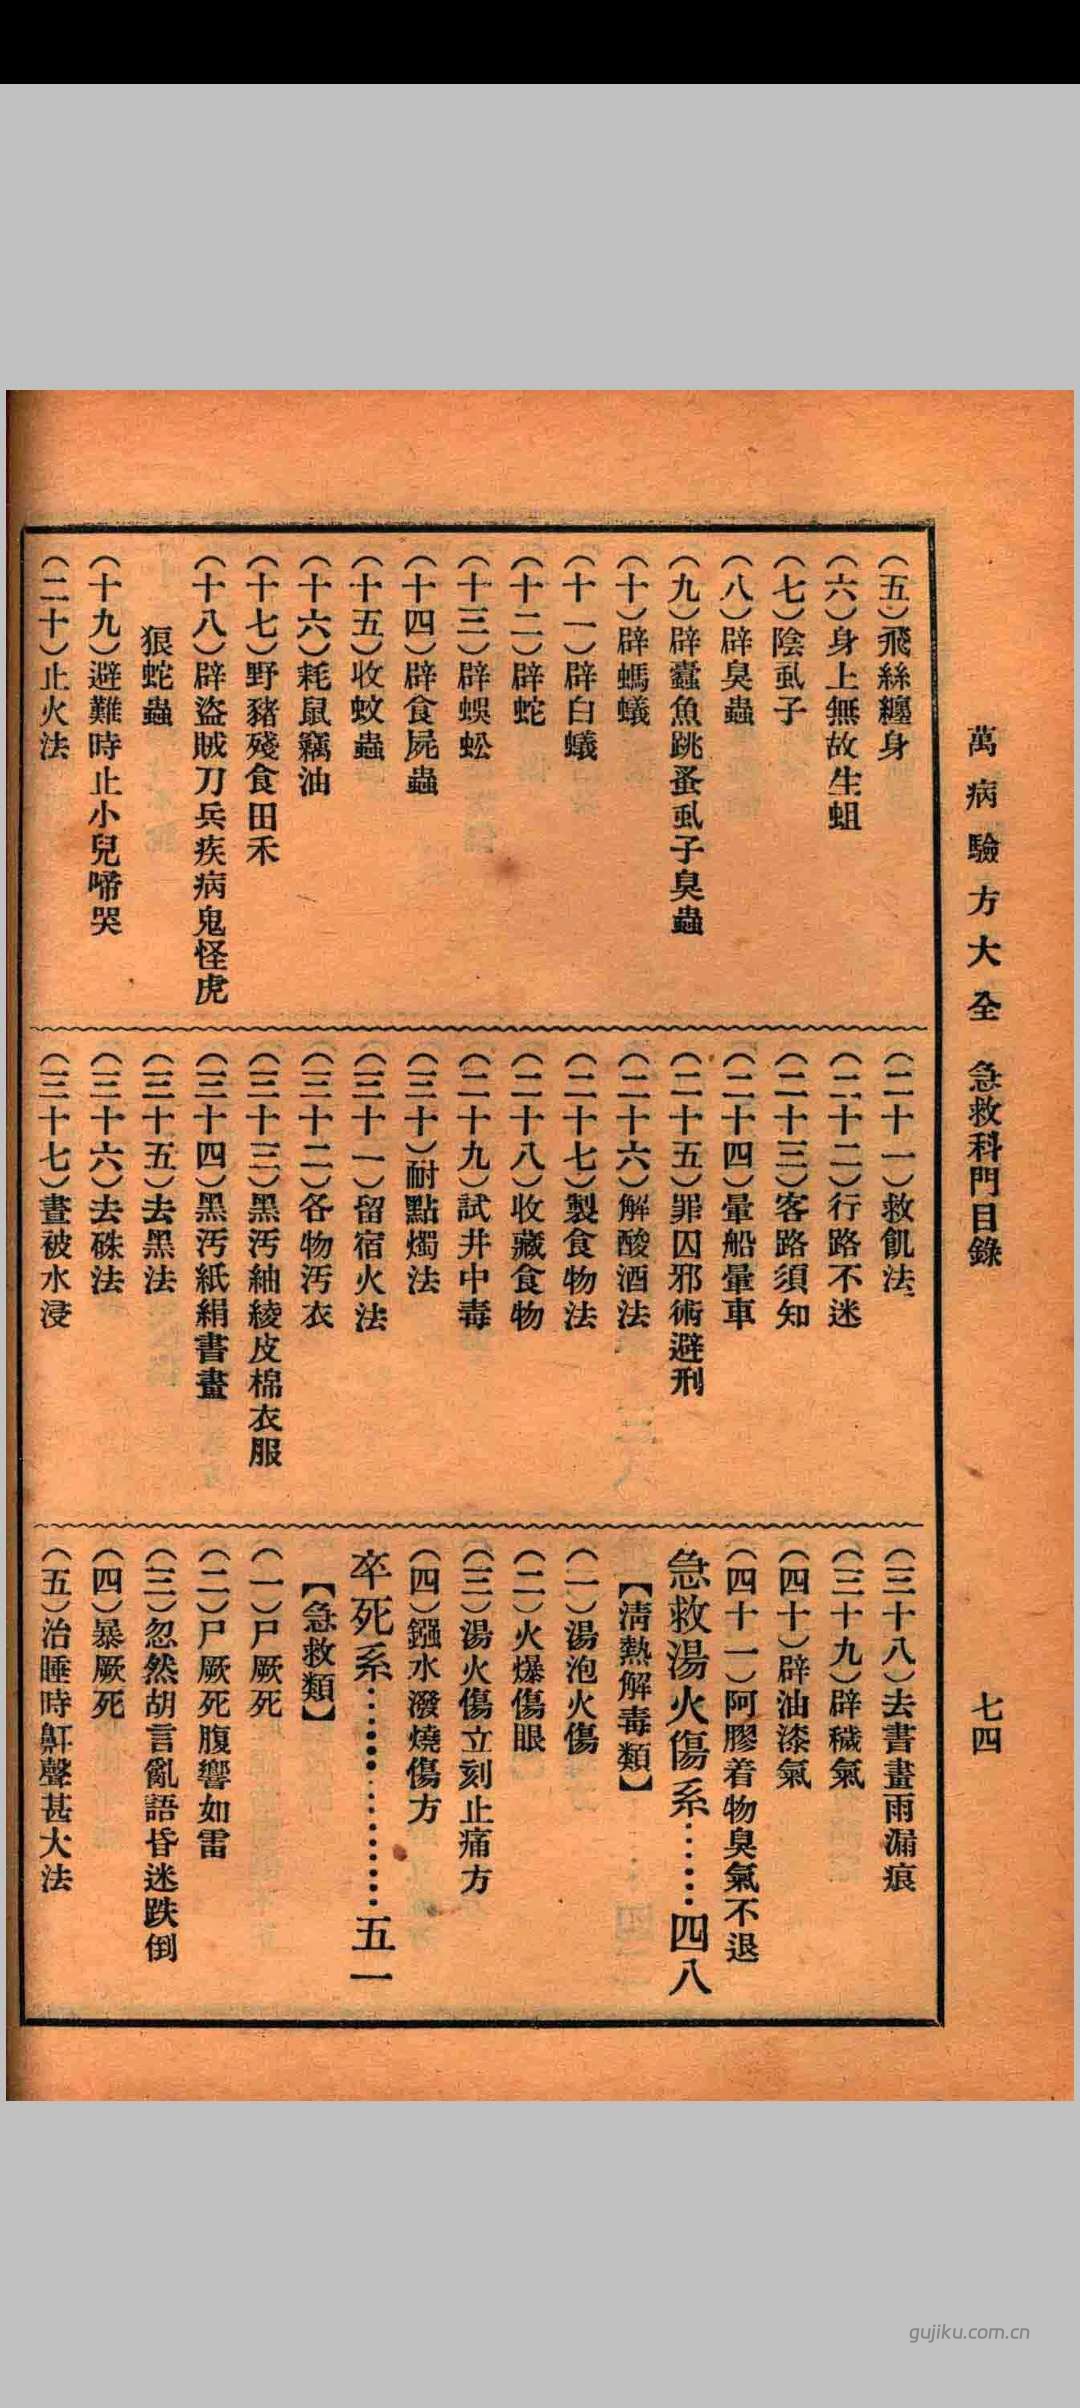 萬病驗方大全 急救科門目錄 七四
（五）飛絲纏身
（六）身上無故生蛆
（七）陰虱子
（八）辟臭蟲
（九）辟蠹魚跳蚤虱子臭蟲
（十）辟螞蟻
（十一）辟白蟻
（十二）辟蛇
（十三）辟蜈蚣
（十四）辟食屍蟲
（十五）收蚊蟲
（十六）耗鼠竊油
（十七）野豬殘食田禾
（十八）辟盜賊刀兵疾病鬼怪虎
狼蛇蟲
（十九）避難時止小兒啼哭
（二十）止火法
（二十一）救飢法
（二十二）行路不迷
（二十三）客路須知
（二十四）暈船暈車
（二十五）罪囚邪術避刑
（二十六）解酸酒法
（二十七）製食物法
（二十八）收藏食物
（二十九）試井中毒
（三十）耐點燭法
（三十一）留宿火法
（三十二）各物污衣
（三十三）黑污紬綾皮棉衣服
（三十四）黑污紙絹書畫
（三十五）去黑法
（三十六）去硃法
（三十七）畫被水浸
（三十八）去書畫雨漏痕
（三十九）辟穢氣
（四十）辟油漆氣
（四十一）阿膠着物臭氣不退
急救湯火傷系………四八
【淸熱解毒類】
（一）湯泡火傷
（二）火爆傷眼
（三）湯火傷立刻止痛方
（四）鏹水潑燒傷方
卒死系…………五一
【急救類】
（一）尸厥死
（二）尸厥死腹響如雷
（三）忽然胡言亂語昏迷跌倒
（四）暴厥死
（五）治睡時鼾聲甚大法
gujiku.com.cn